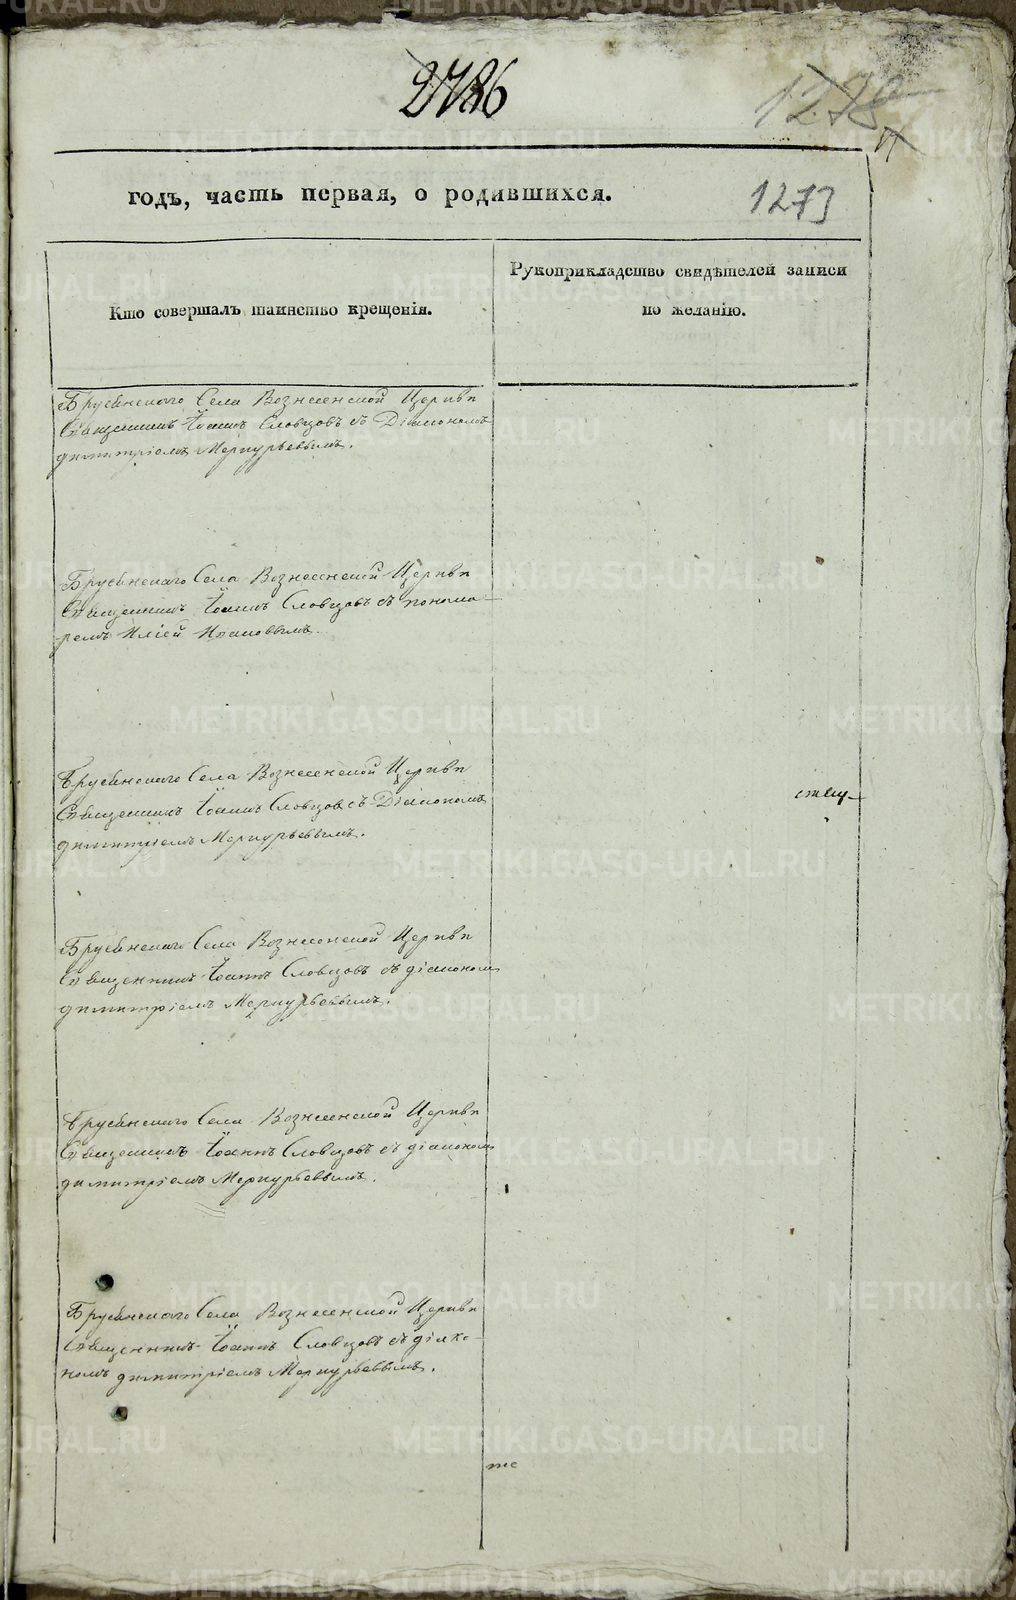 2786
1278
1273
годъ, часть первая, о родившихся.
Кто совершалъ таинство крещенія.
Рукоприкладство свидѣтелей записи
по желанію.
Брусянскаго Села Вознесенской Церкви
Священникъ Іоаннъ Словцовъ съ Діакономъ
димитріемъ Меркурьевымъ.
Брусянскаго Села Вознесенской Церкви
Священникъ Іоаннъ Словцовъ съ понома-
ремъ Иліей Ивановымъ.
Брусянскаго Села Вознесенской Церкви
Священникъ Іоаннъ Словцовъ съ Діакономъ
димитріемъ Меркурьевымъ.
Брусянскаго Села Вознесенской Церкви
Священникъ Іоаннъ Словцовъ съ діакономъ
димитріемъ Меркурьевымъ.
Брусянскаго Села Вознесенской Церкви
Священникъ Іоаннъ Словцовъ съ діакономъ
димитріемъ Меркурьевымъ.
Брусянскаго Села Вознесенской Церкви
Священникъ Іоаннъ Словцовъ съ діако-
номъ димитріемъ Меркурьевымъ.
METRIKI.GASO-URAL.RU